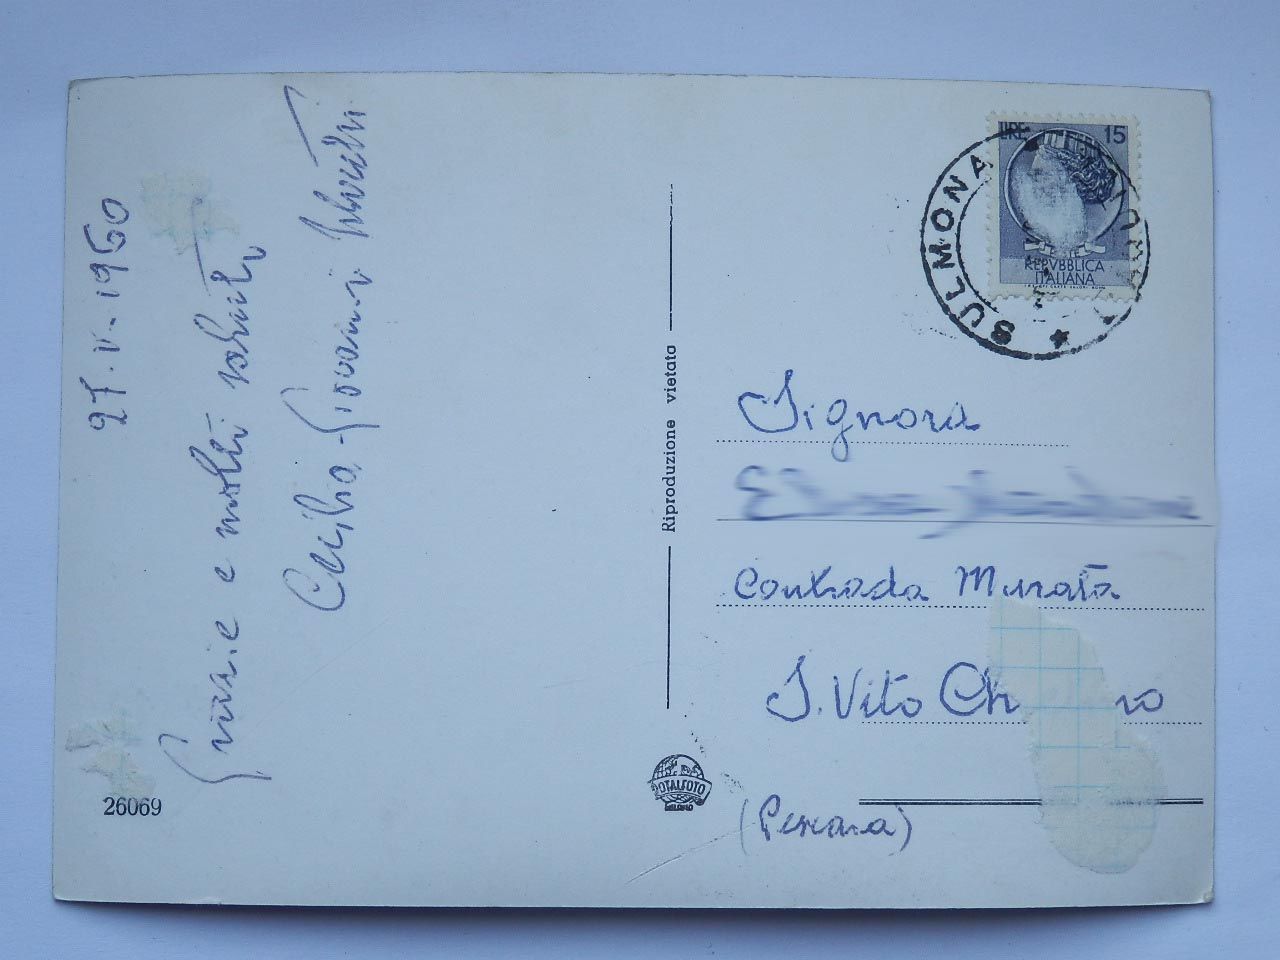 27-V-1960
Grazie e molti saluti
Giovanni
26069
Riproduzione vietata
ROTALFOTO
MILANO
LIRE 15
REPVBBLICA
ITALIANA
SULMONA
Signora
Contrada Murata
S. Vito Ch no
(Pescara)